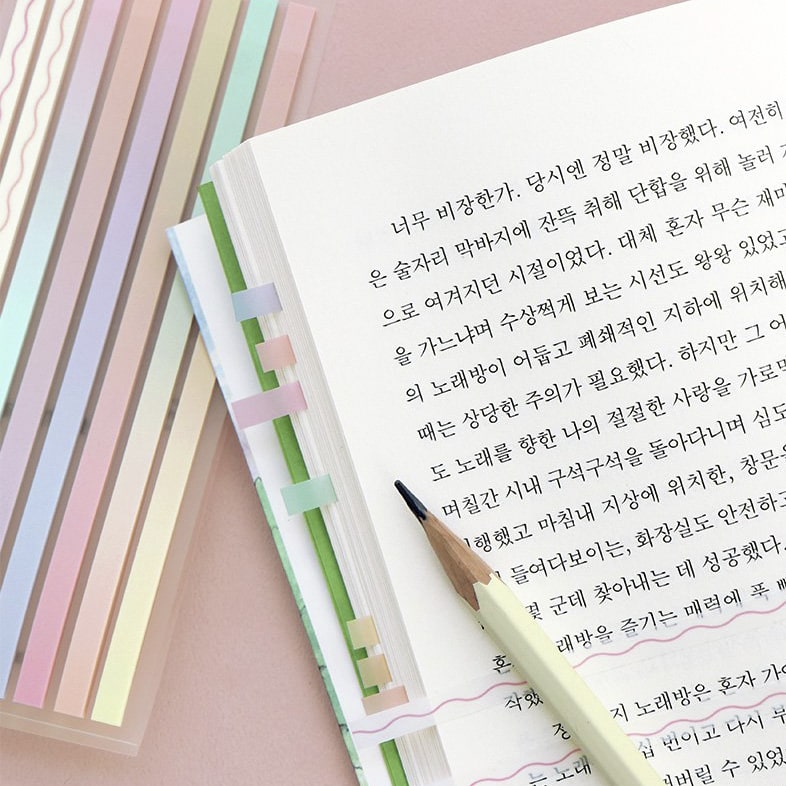 너무 비장한가. 당시엔 정말 비장했다. 여전히
은 술자리 막바지에 잔뜩 취해 단합을 위해 놀러
으로 여겨지던 시절이었다. 대체 혼자 무슨 재미
을 가느냐며 수상쩍게 보는 시선도 왕왕 있었고
의 노래방이 어둡고 폐쇄적인 지하에 위치해
때는 상당한 주의가 필요했다. 하지만 그 어
도 노래를 향한 나의 절절한 사랑을 가로막
며칠간 시내 구석구석을 돌아다니며 심도
행했고 마침내 지상에 위치한, 창문을
들여다보이는, 화장실도 안전하고
몇 군데 찾아내는 데 성공했다.
래방을 즐기는 매력에 푹
작했
지 노래방은 혼자 가
는 노래 십 번이고 다시 부
버릴 수 있었